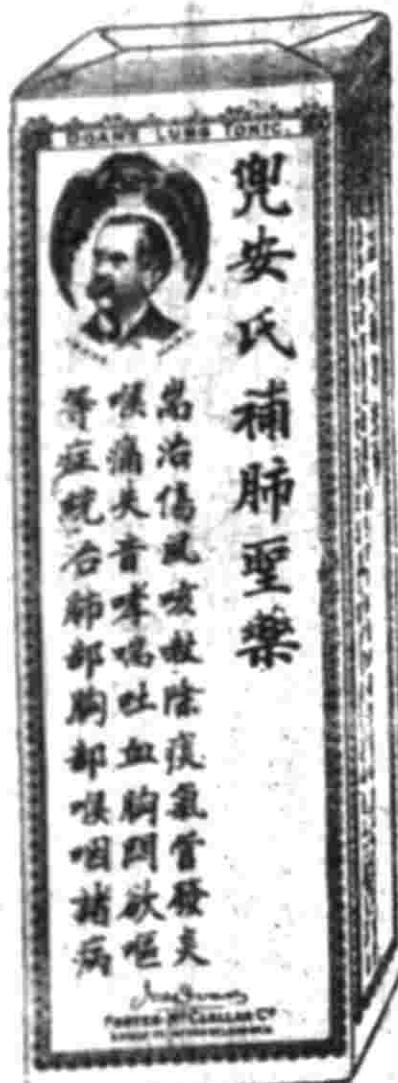 DOANS LUNG TONIC.
兜安氏補肺聖藥
耑治傷風咳嗽除痰氣管發炎
喉痛失音哮喘吐血胸悶欲嘔
等症統治肺部胸部喉咽諸病
FOSTER-MCCLELLAN CO